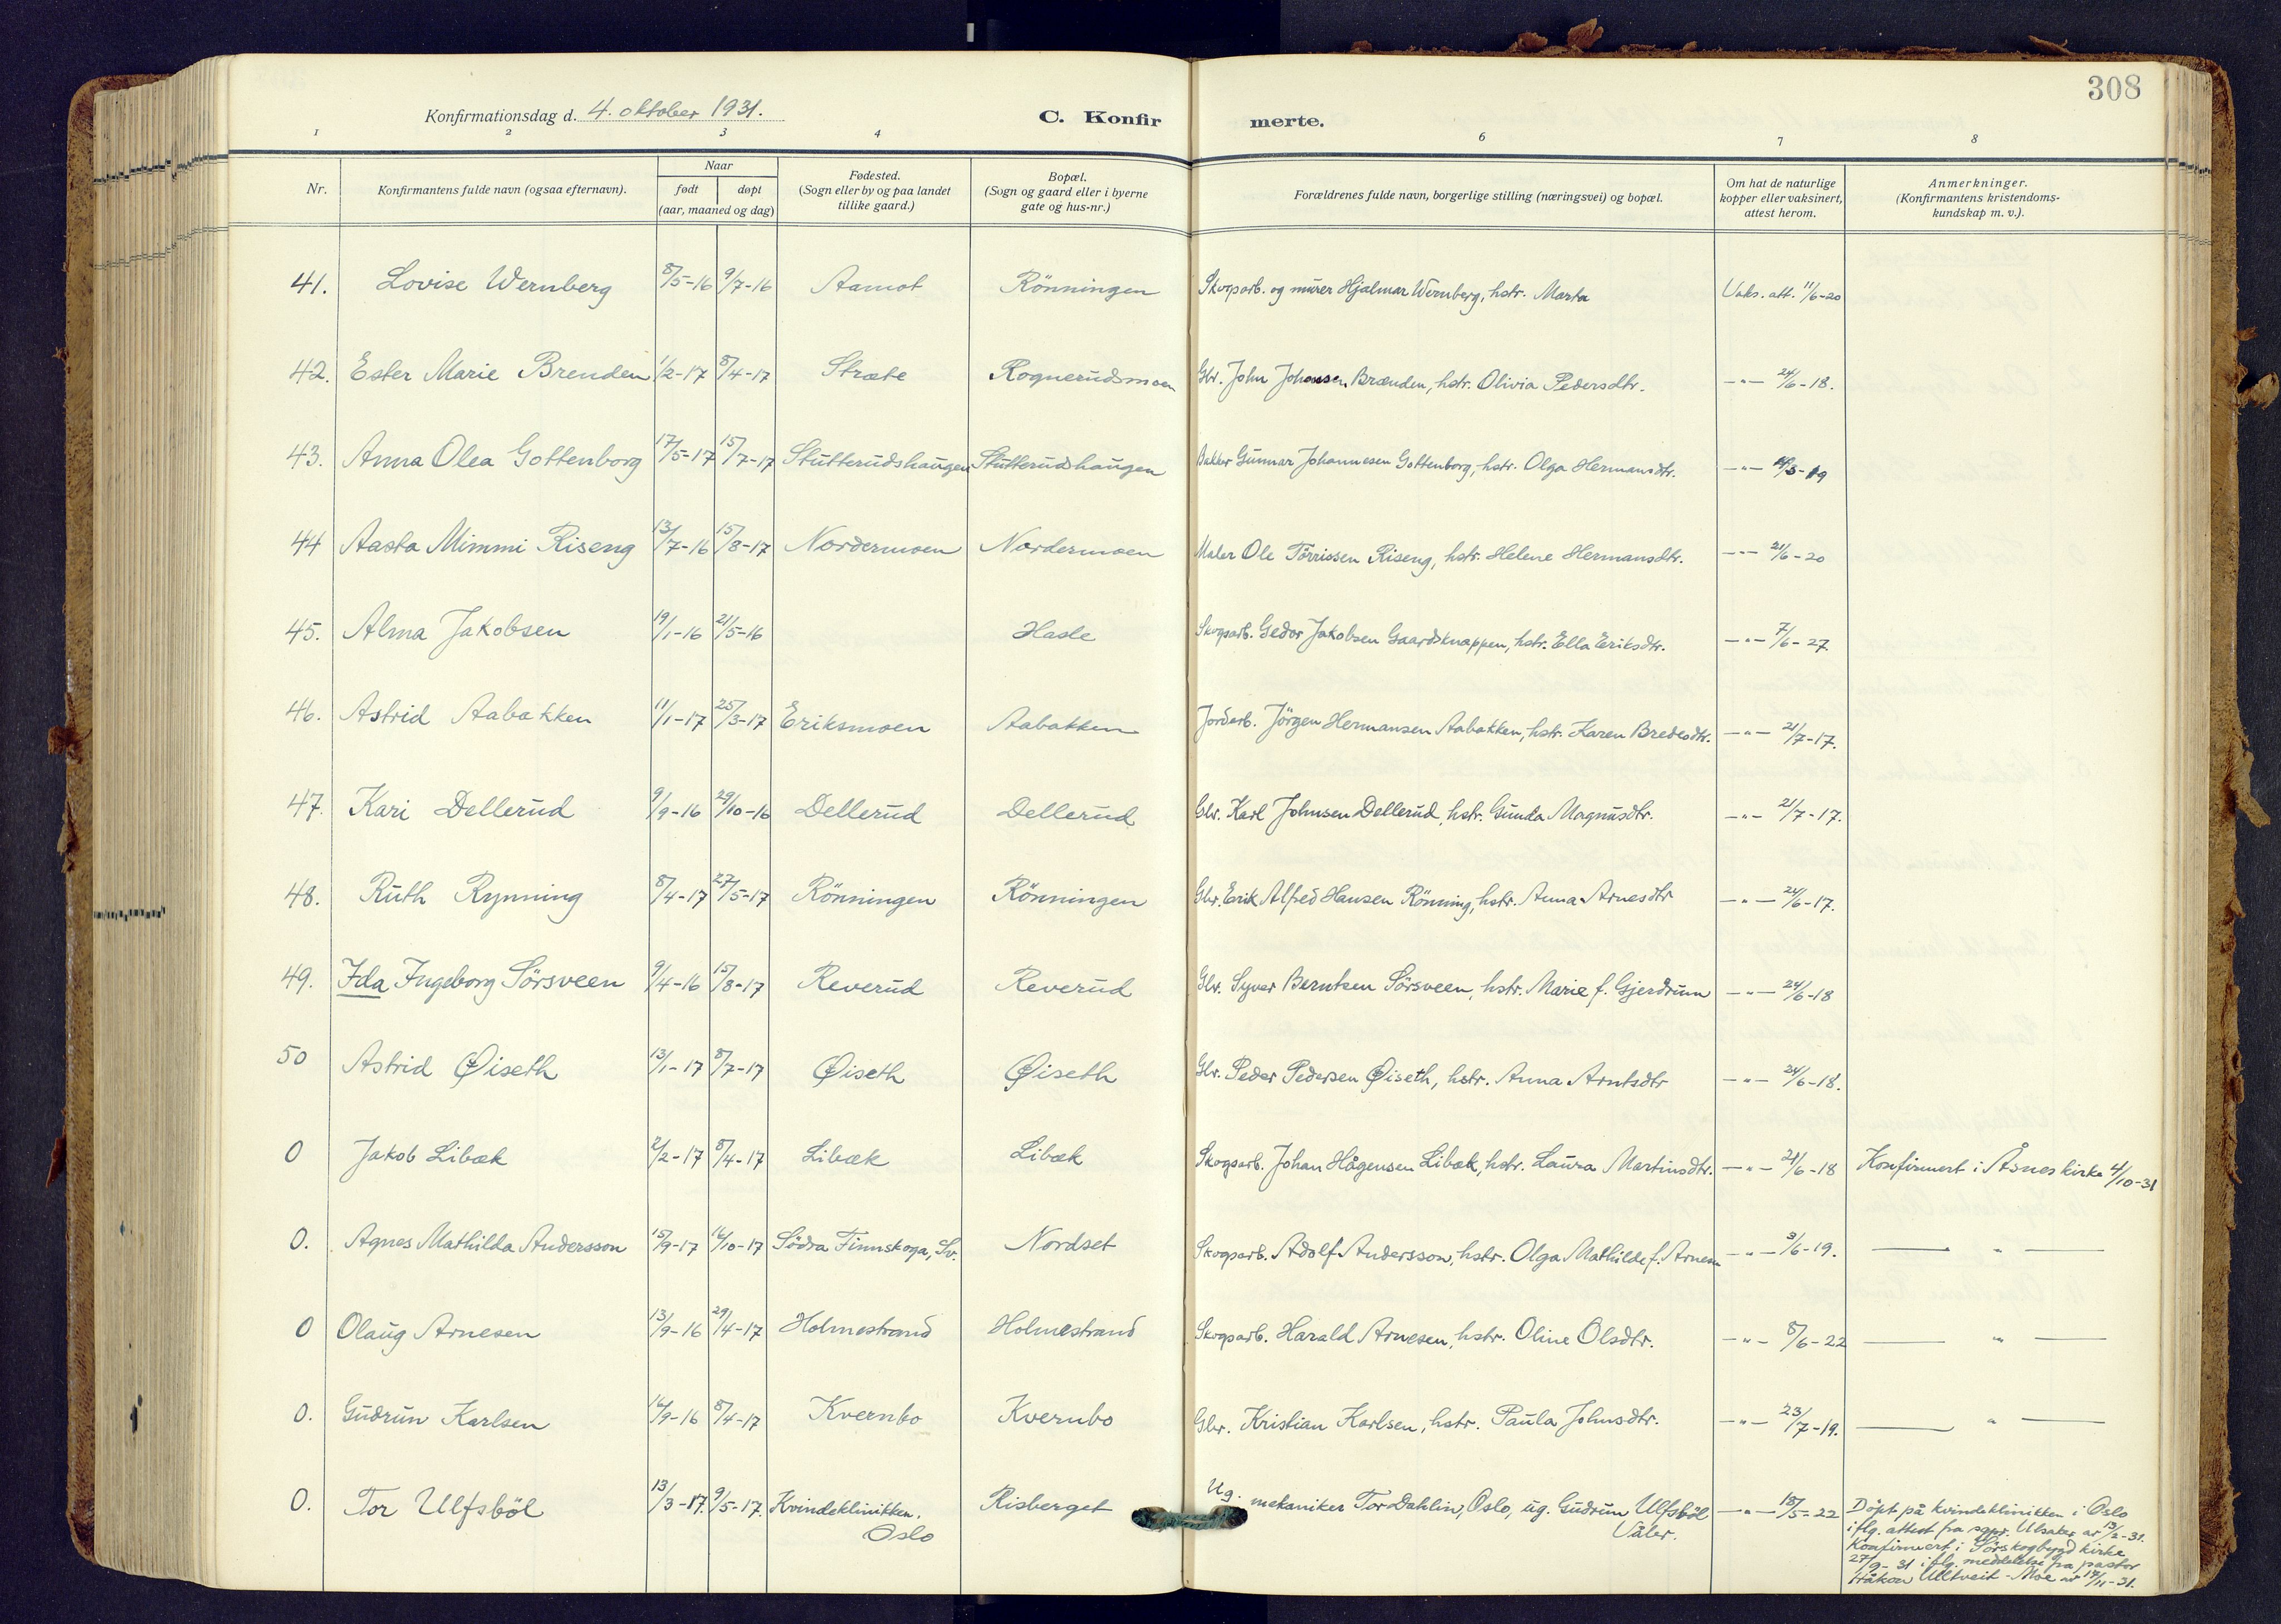 308
Konfirmationsdag d. 4. oktober 1931.
C. Konfirmerte.
1 2 3 4 6 7 8
Nr.
Konfirmantens fulde navn (ogsaa efternavn).
Naar
født døpt
(aar, maaned og dag)
Fødested.
(Sogn eller by og paa landet
tillike gaard.)
Bopæl.
(Sogn og gaard eller i byerne
gate og hus-nr.)
Forældrenes fulde navn, borgerlige stilling (næringsvei) og bopæl.
Om hat de naturlige
kopper eller vaksinert,
attest herom.
Anmerkninger.
(Konfirmantens kristendoms-
kundskap m. v.).
41. Lovise Wernberg 8/5-16 9/7-16 Aamot Rönningen Skogsarb. og murer Hjalmar Wernberg, hstr. Marta Vaks. att. 11/6-20
42. Ester Marie Brenden 1/2-17 8/4-17 Stræte Rognerudsmoen Gbr. John Johansen Brænden, hstr. Olivia Pedersdtr. —"— 24/6-18.
43. Anna Olea Gottenborg 17/5-17 15/7-17 Stutterudshaugen Stutterudshaugen Bakker Gunnar Johannesen Gottenborg, hstr. Olga Hermansdtr. —"— -19
44 Aasta Mimmi Riseng 13/7-16 15/8-17 Nordermoen Nordermoen Maler Ole Törrissen Riseng, hstr. Helene Hermansdtr. —"— 21/6-20
45. Alma Jakobsen 19/1-16 21/5-16 Hasle Skogsarb. Gedor Jakobsen Gaardsknappen, hstr. Ella Eriksdtr. —"— 7/6-27
46. Astrid Aabakken 11/1-17 25/3-17 Eriksmoen Aabakken Jordarb. Jörgen Hermansen Aabakken, hstr. Karen Bredesdtr. —"— 21/7-17.
47. Kari Dellerud 9/9-16 29/10-16 Dellerud Dellerud Gbr. Karl Johnsen Dellerud, hstr. Gunda Magnusdtr. —"— 21/7-17.
48. Ruth Rynning 8/4-17 27/5-17 Rönningen Rönningen Gbr. Erik Alfred Hansen Rönning, hstr. Anna Arnesdtr —"— 24/6-17.
49. Ida Ingeborg Sörsveen 9/4-16 15/8-17 Reverud Reverud Gbr. Syver Berntsen Sörsveen, hstr. Marie f. Gjerdrum —"— 24/6-18
50 Astrid Øiseth 13/1-17 8/7-17 Øiseth Øiseth Gbr. Peder Pedersen Øiseth, hstr. Anna Arntsdtr —"— 24/6-18.
0 Jakob Libæk 2/2-17 8/4-17 Libæk Libæk Skogsarb. Johan Hågensen Libæk, hstr. Laura Martinsdtr. —"— 21/6-18 Konfirmert i Åsnes kirke 4/10-31
0. Agnes Mathilda Andersson 15/9-17 16/10-17 Södra Finnskoga, Sv. Nordset Skogsarb. Adolf Andersson, hstr. Olga Mathilde f. Arnesen —"— 3/6-19. —"—
0 Olaug Arnesen 13/9-16 29/4-17 Holmestrand Holmestrand Skogsarb. Harald Arnesen, hstr. Oline Olsdtr. —"— 8/6-22 —"—
0. Gudrun Karlsen 16/9-16 8/4-17 Kvernbo Kvernbo Gbr. Kristian Karlsen, hstr. Paula Johnsdtr. —"— 23/7-19. —"—
0. Tor Ulfsböl 13/3-17. 9/5-17. Kvindeklinikken. Oslo Risberget Ug. mekaniker Tor Dahlin, Oslo, ug. Gudrun Ulfsböl Våler. —"— 18/5-22
Döpt på kvindeklinikken i Oslo
iflg. attest fra sgpr. Ulsaker av 13/2-31.
Konfirmert i Sörskogbygd kirke
27/9-31 iflg. meddelelse fra pastor
Håkon Ulltveit-Moe av 17/11-31.